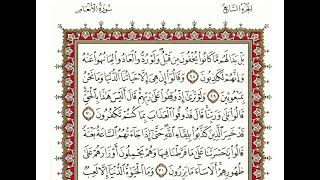 الجزء السابع
سورة الأنعام
بَلْ بَدَا لَهُم مَّا كَانُوا۟ يُخْفُونَ مِن قَبْلُ ۖ وَلَوْ رُدُّوا۟ لَعَادُوا۟ لِمَا نُهُوا۟ عَنْهُ
وَإِنَّهُمْ لَكَـٰذِبُونَ ٢٨ وَقَالُوٓا۟ إِنْ هِىَ إِلَّا حَيَاتُنَا ٱلدُّنْيَا وَمَا نَحْنُ
بِمَبْعُوثِينَ ٢٩ وَلَوْ تَرَىٰٓ إِذْ وُقِفُوا۟ عَلَىٰ رَبِّهِمْ ۚ قَالَ أَلَيْسَ هَـٰذَا بِٱلْحَقِّ ۚ
قَالُوا۟ بَلَىٰ وَرَبِّنَا ۚ قَالَ فَذُوقُوا۟ ٱلْعَذَابَ بِمَا كُنتُمْ تَكْفُرُونَ ٣٠
قَدْ خَسِرَ ٱلَّذِينَ كَذَّبُوا۟ بِلِقَآءِ ٱللَّهِ ۖ حَتَّىٰٓ إِذَا جَآءَتْهُمُ ٱلسَّاعَةُ بَغْتَةً
قَالُوا۟ يَـٰحَسْرَتَنَا عَلَىٰ مَا فَرَّطْنَا فِيهَا وَهُمْ يَحْمِلُونَ أَوْزَارَهُمْ عَلَىٰ
ظُهُورِهِمْ ۚ أَلَا سَآءَ مَا يَزِرُونَ ٣١ وَمَا ٱلْحَيَوٰةُ ٱلدُّنْيَآ إِلَّا لَعِبٌ